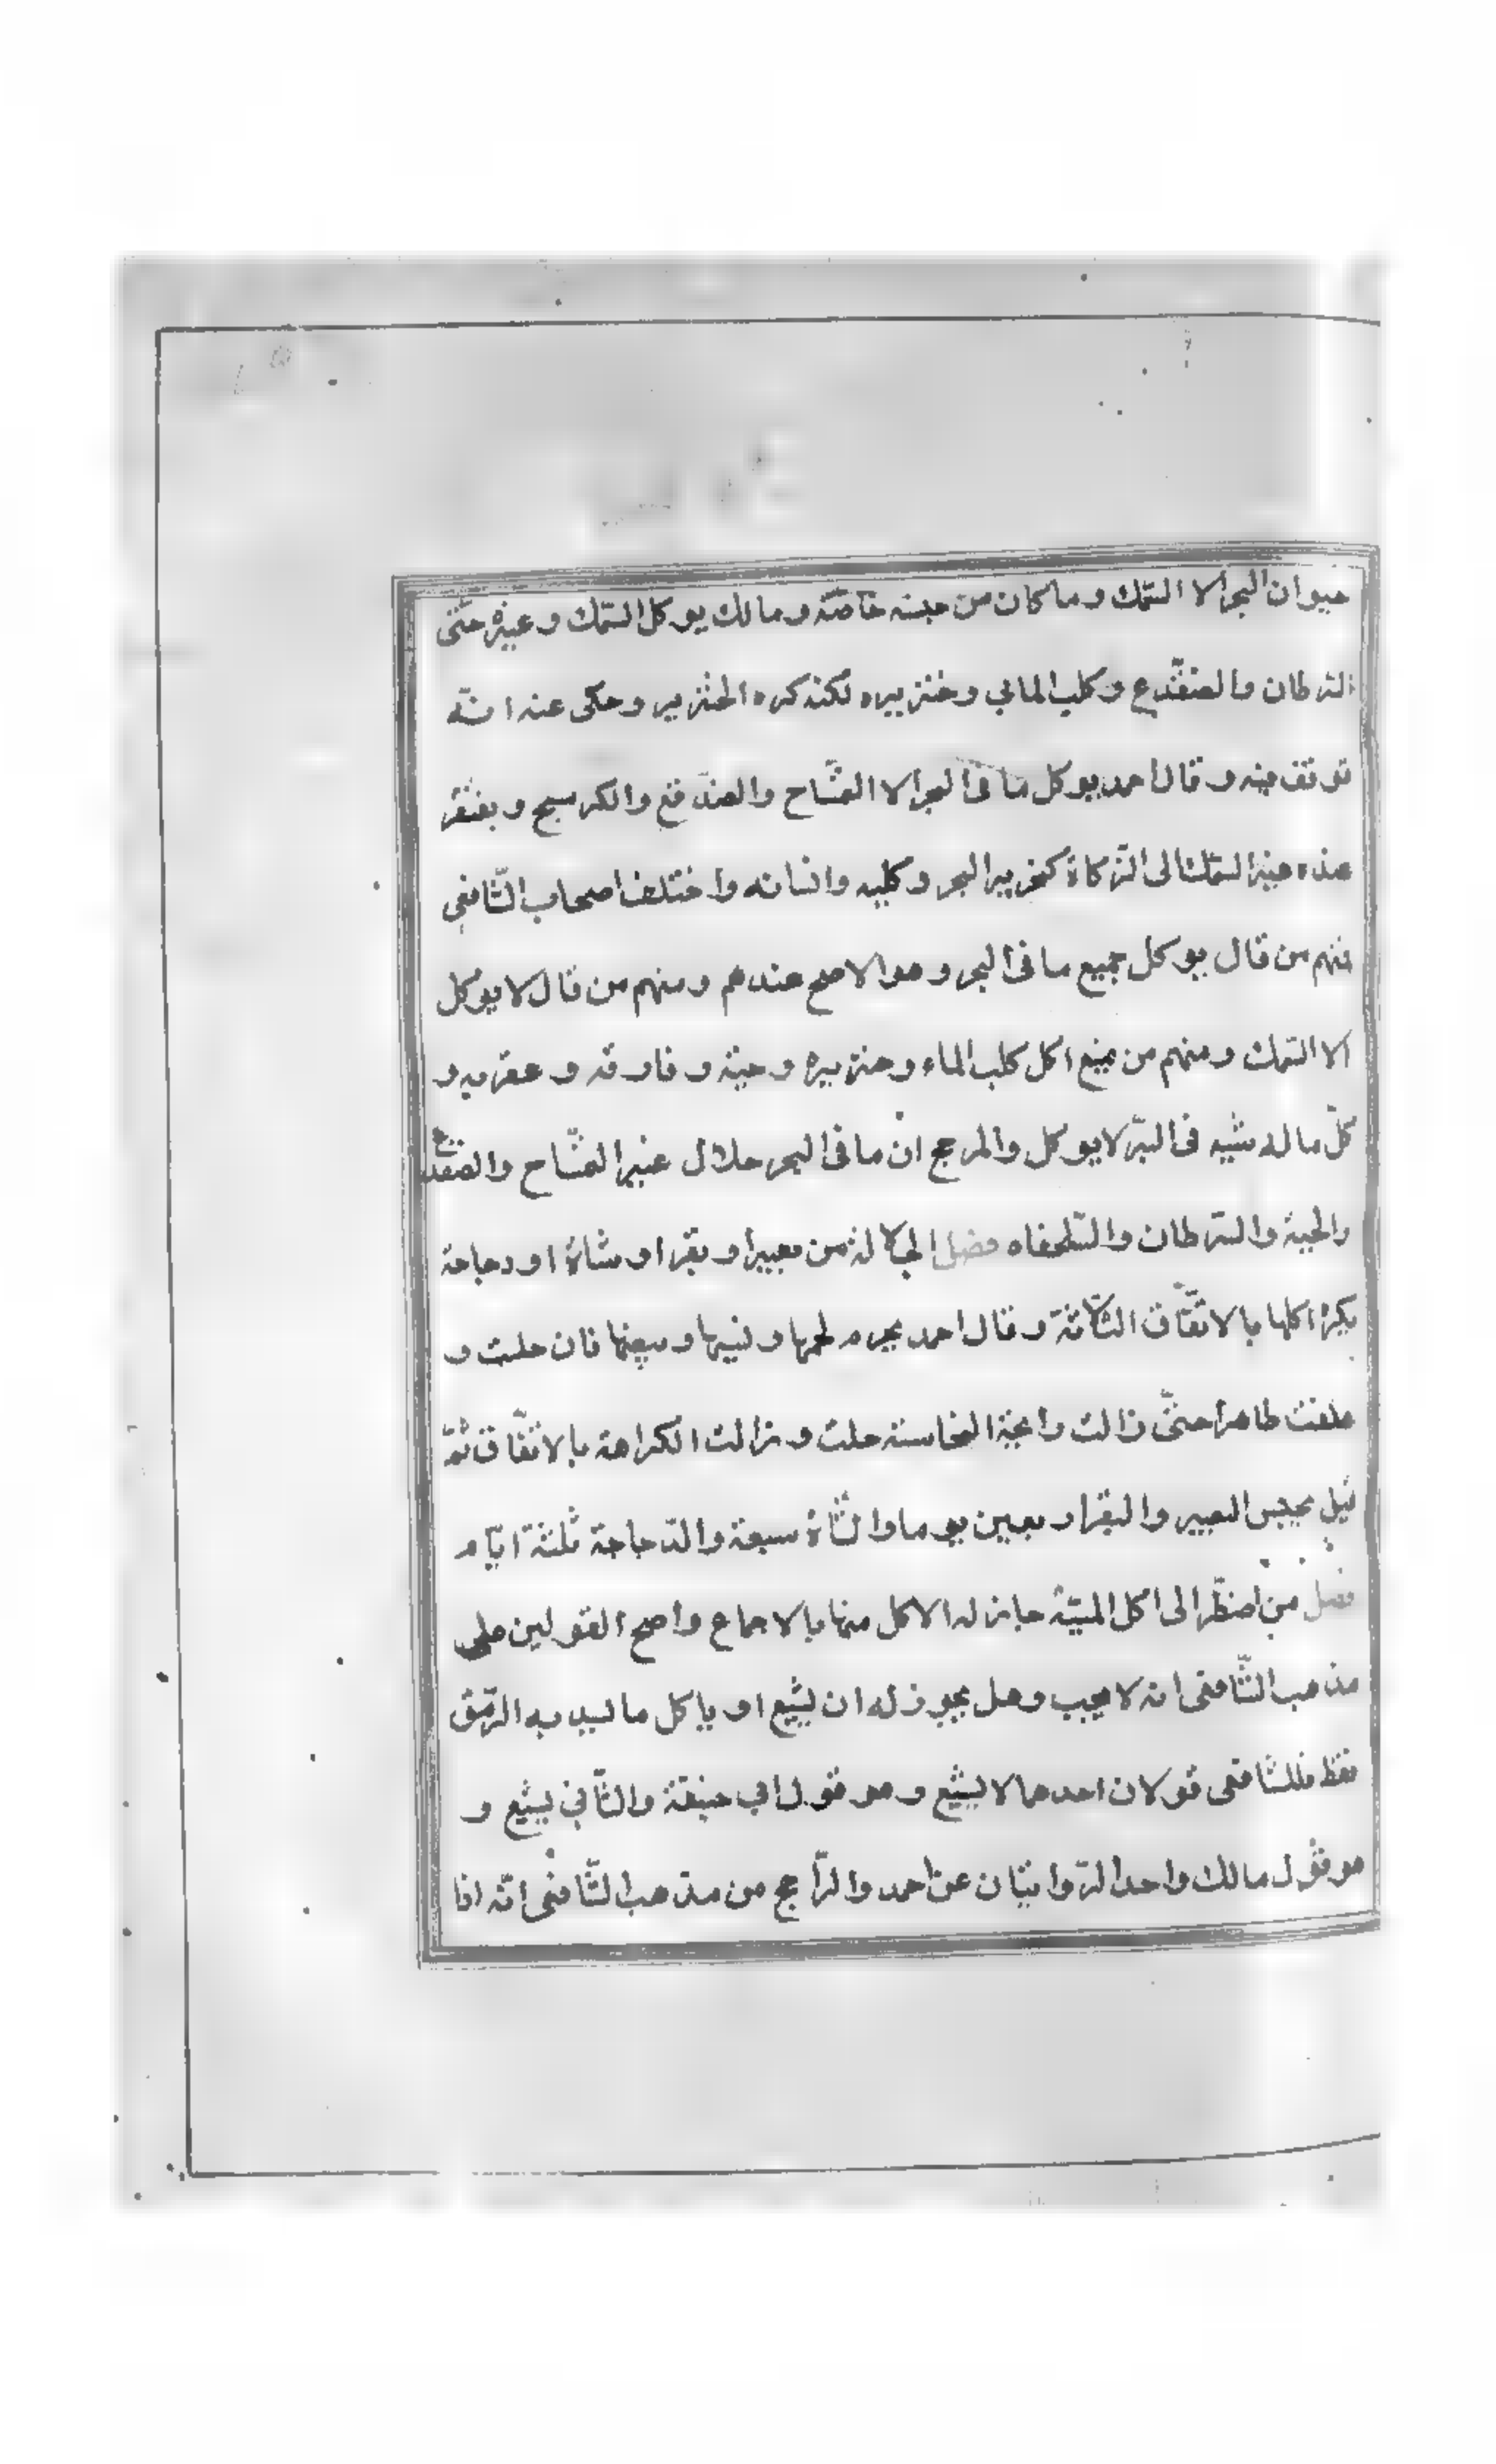 حيوان البحر الا السّمك وما كان من جنسه خاصّة ومالك يوكل السّمك وغيره حتّى
السّرطان والضفدع وكلب الماء وخنزيره لكنه كره الخنزير وحكى عنه انّه
توقف فيه وقال احمد يوكل ما فى البحر الا التمّساح والضفدع والكوسج ويفتقر
عنده غير السّمك الى الزّكاة كخنزير البحر وكلبه وانسانه واختلف اصحاب الشّافعى
فمنهم من قال يوكل جميع ما فى البحر وهو الاصح عندهم ومنهم من قال لا يوكل
الا السّمك ومنهم من يمنع اكل كلب الماء وخنزيره وحيّة وفارة وعقربه و
كلّ ما له شبيه فى البرّ لا يوكل والمرجح ان ما فى البحر حلال غير التمّساح والضفدع
والحيّة والسّرطان والسّلحفاه فصل الجلالة من بعير او بقر او شاة او دجاجة
يكره اكلها بالاتّفاق الثلاثة وقال احمد يحرم لحمها ولبنها وبيضها فان حلت و
علفت طاهرا حتّى زالت رائحة النجاسة حلت وزالت الكراهة بالاتّفاق ثمّ
قيل يحبس البعير والبقر اربعين يوما والشّاة سبعة والدّجاجة ثلثة ايّام
فصل من اضطّر الى اكل الميتة جاز له الاكل منها بالاجماع واصح القولين على
مذهب الشّافعى انه لا يجب وهل يجوز له ان يشبع او ياكل ما ليسد به الرّمق
فقط فللشافعى قولان احدهما لا يشبع وهو قول ابى حنيفة والثّانى يشبع و
هو قول مالك واحد الرّوايتان عن احمد والرّاجح من مذهب الشّافعى انّه اذا